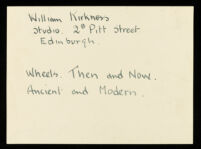 William Kirkness
Studio. 2ª Pitt Street
Edinburgh.
Wheels. Then and Now.
Ancient and Modern.